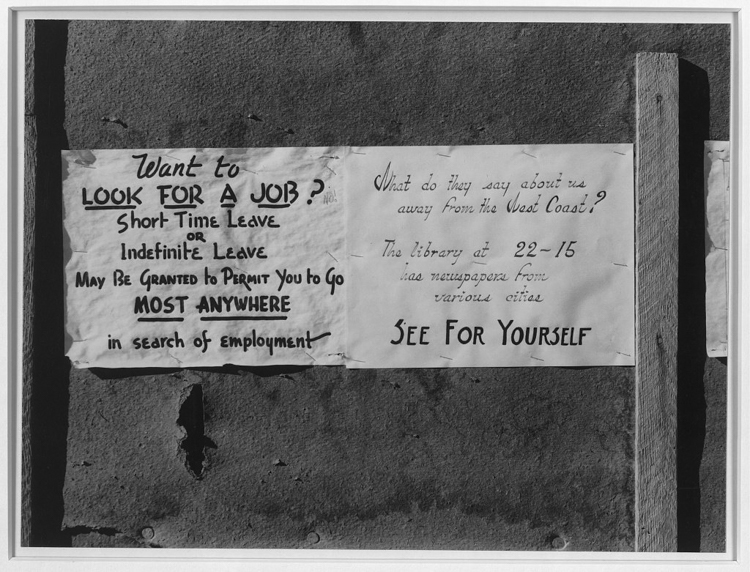 Want to
LOOK FOR A JOB?
Short Time Leave
OR
Indefinite Leave
May Be Granted to Permit You to Go
MOST ANYWHERE
in search of employment
What do they say about us
away from the West Coast?
The library at 22-15
has newspapers from
various cities
SEE FOR YOURSELF